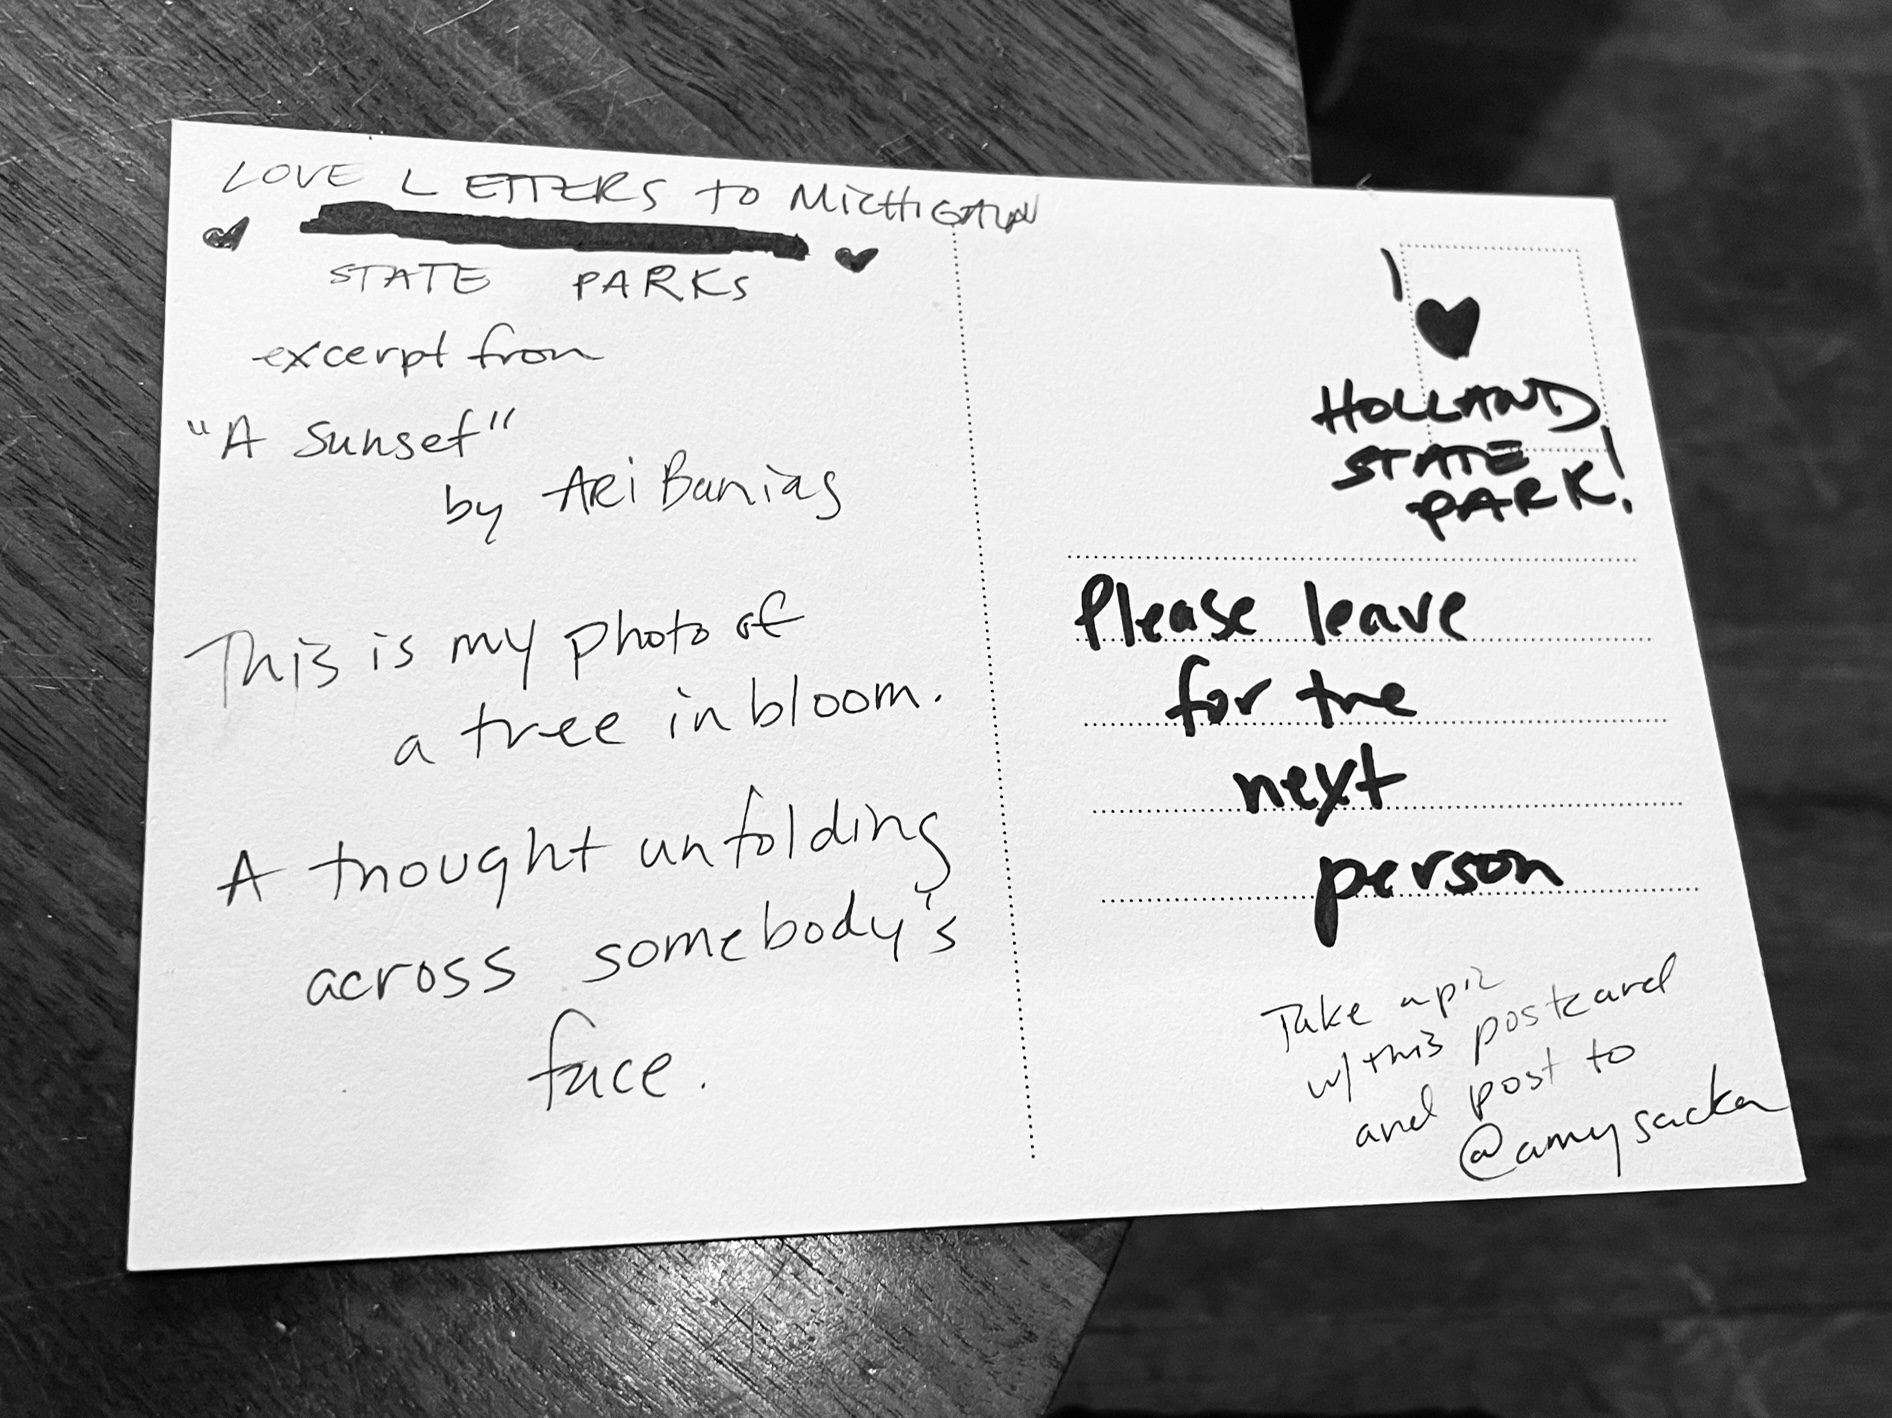 LOVE LETTERS TO MICHIGAN
STATE PARKS
excerpt from
"A Sunset"
by Ari Banias
This is my photo of
a tree in bloom.
A thought unfolding
across somebody's
face.
I ♥
HOLLAND
STATE
PARK!
Please leave
for the
next
person
Take a pic
w/ this postcard
and post to
@amysacka